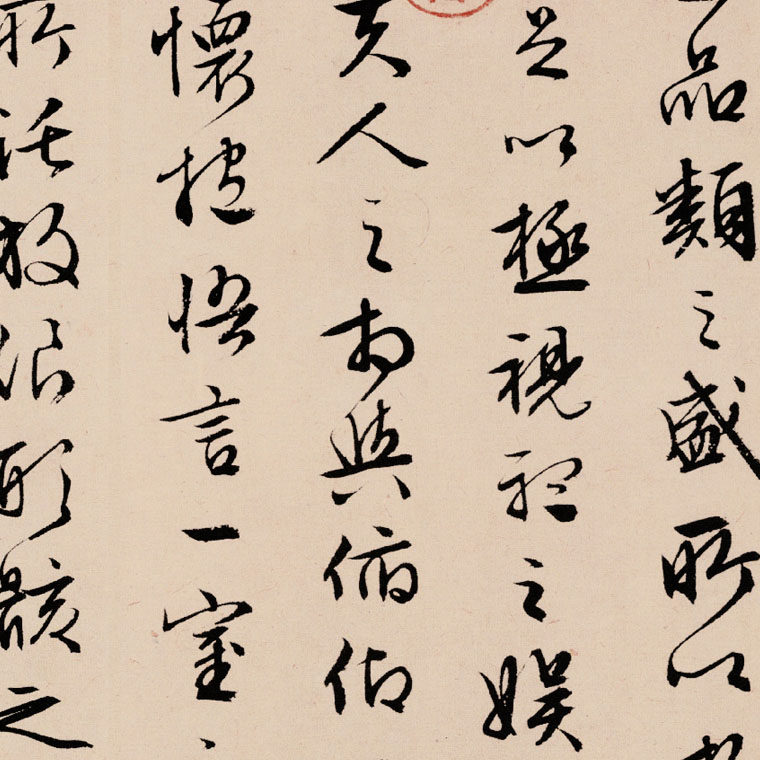 品類之盛所以
足以極視聽之娛
夫人之相與俯仰
懷抱悟言一室
所託放浪形骸之